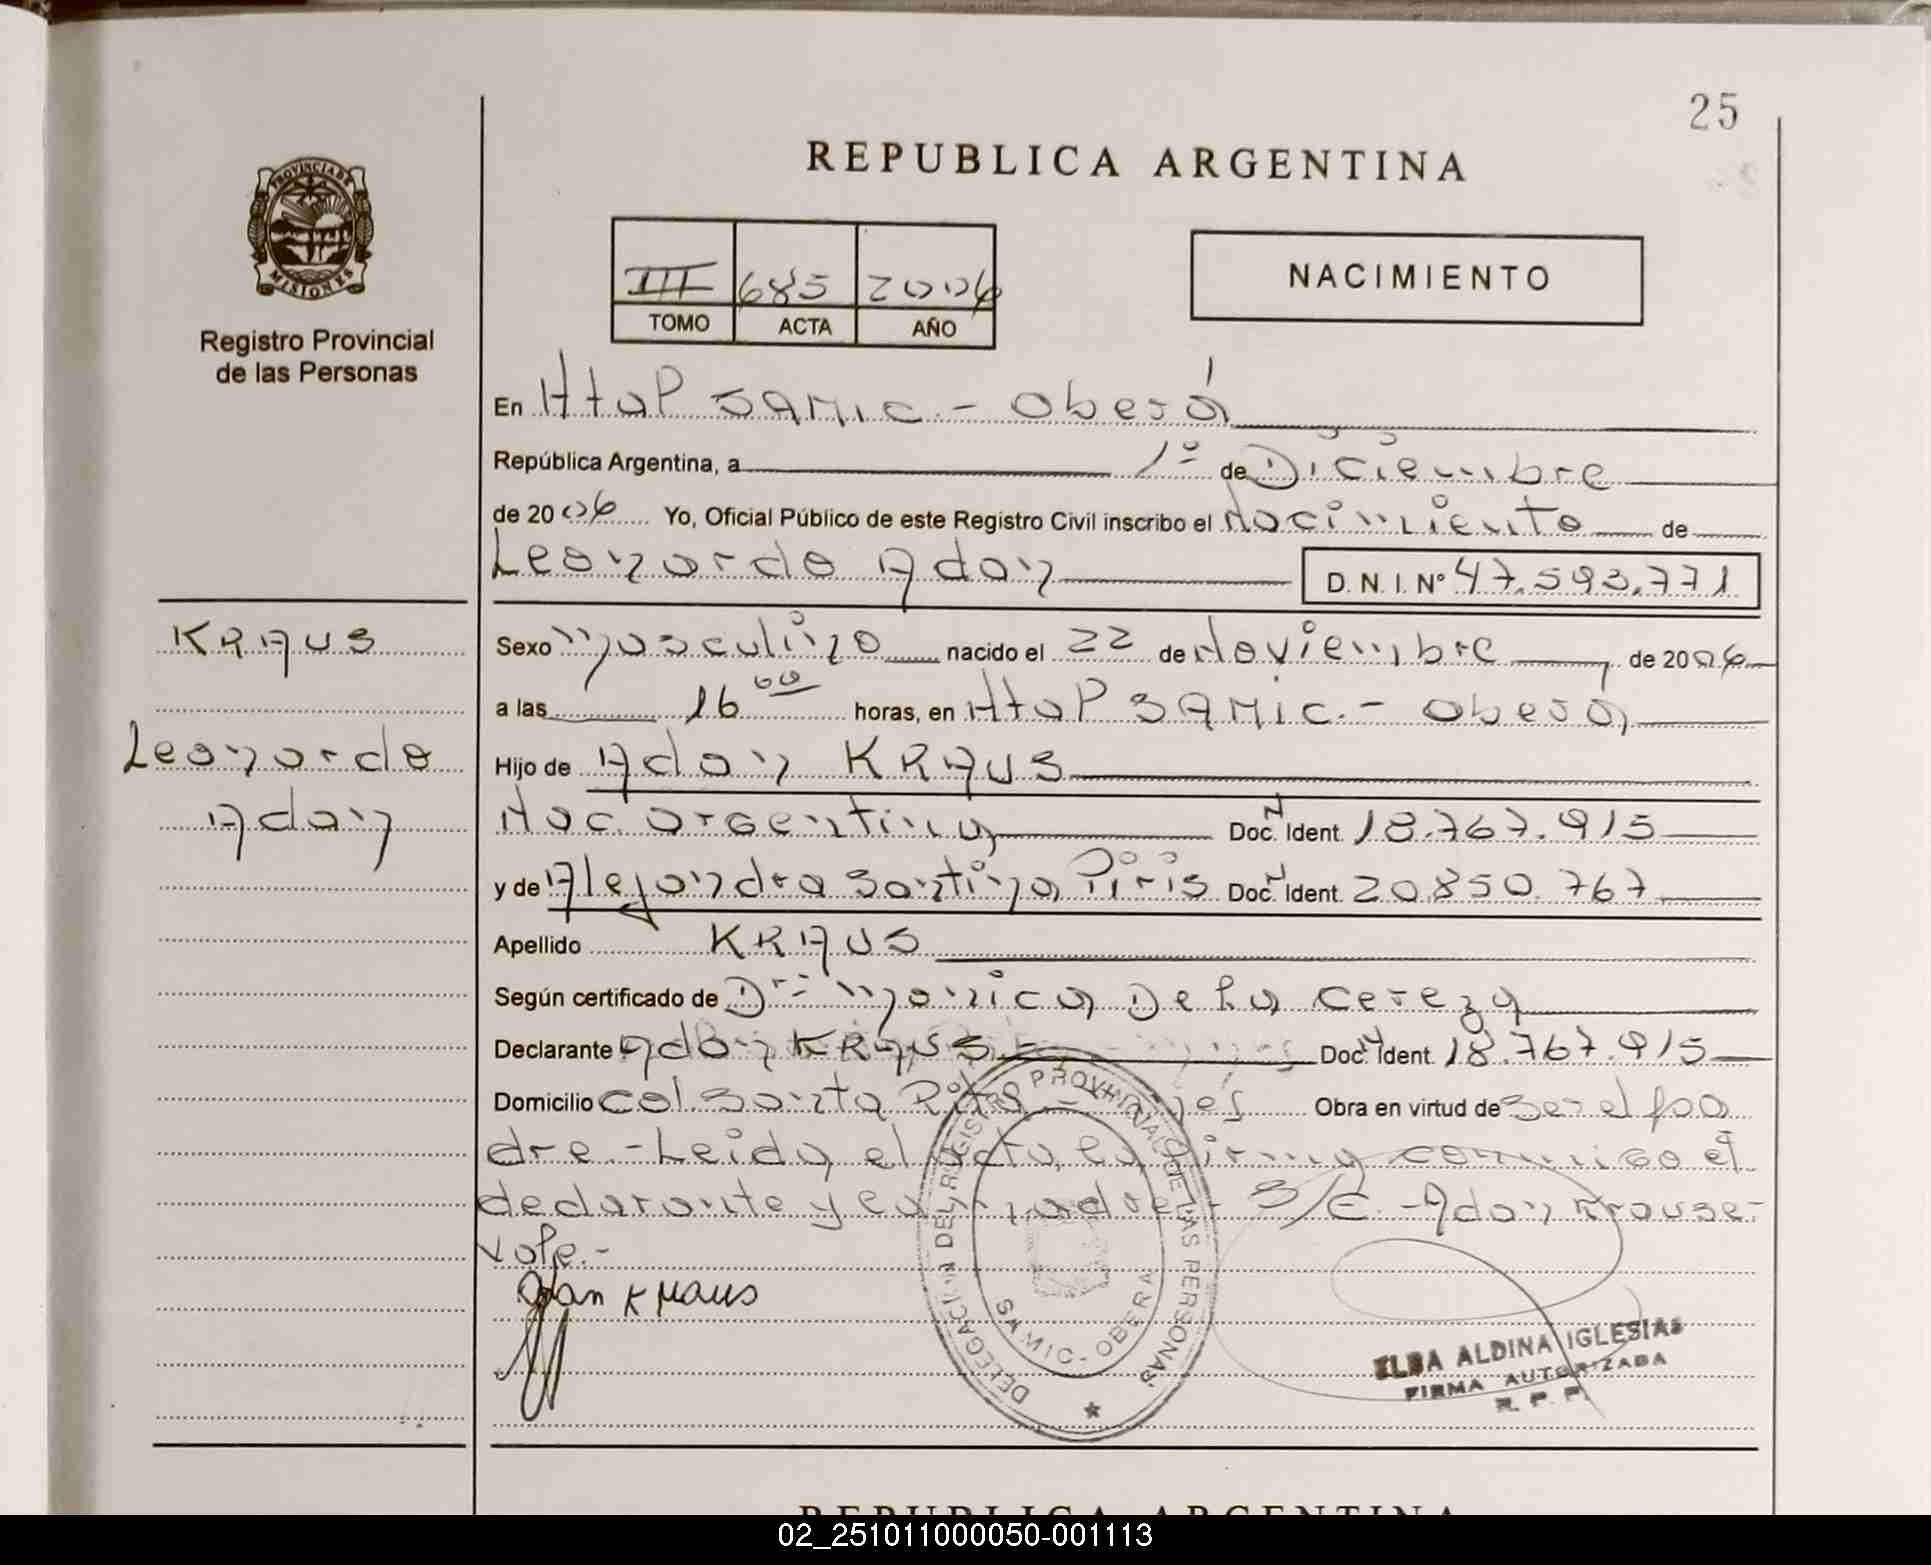 25
REPUBLICA ARGENTINA
PROVINCIA DE
MISIONES
Registro Provincial
de las Personas
III 685 2006
TOMO ACTA AÑO
NACIMIENTO
En Htal SAMIC.- Oberá
República Argentina, a 1º de Diciembre
de 2006 Yo, Oficial Público de este Registro Civil inscribo el Nacimiento de
Leonardo Adan D. N. I. Nº 47.593.771
KRAUS
Sexo Masculino nacido el 22 de Noviembre de 2006
a las 16 00 horas, en Htal SAMIC.- Oberá
Leonardo
Adan
Hijo de Adan KRAUS
Nac. argentina Doc. N Ident. 18.767.915
y de Alejandra Santina Piris Doc. N Ident. 20.850.767
Apellido KRAUS
Según certificado de Dra Monica De La Cereza
Declarante Adan KRAUS Doc. N Ident. 18.767.915
Domicilio Col. Santa Rita Obra en virtud de ser el pa
dre.- Leida el acta, la firma conmigo el
declarante y la madre.- S/C.- Adan Krause-
Vale.-
Adan Kraus
DELEGACION DEL REGISTRO PROVINCIAL DE LAS PERSONAS
SAMIC - OBERA
ELBA ALDINA IGLESIAS
FIRMA AUTORIZADA
R. P. P.
REPUBLICA ARGENTINA
02_251011000050-001113